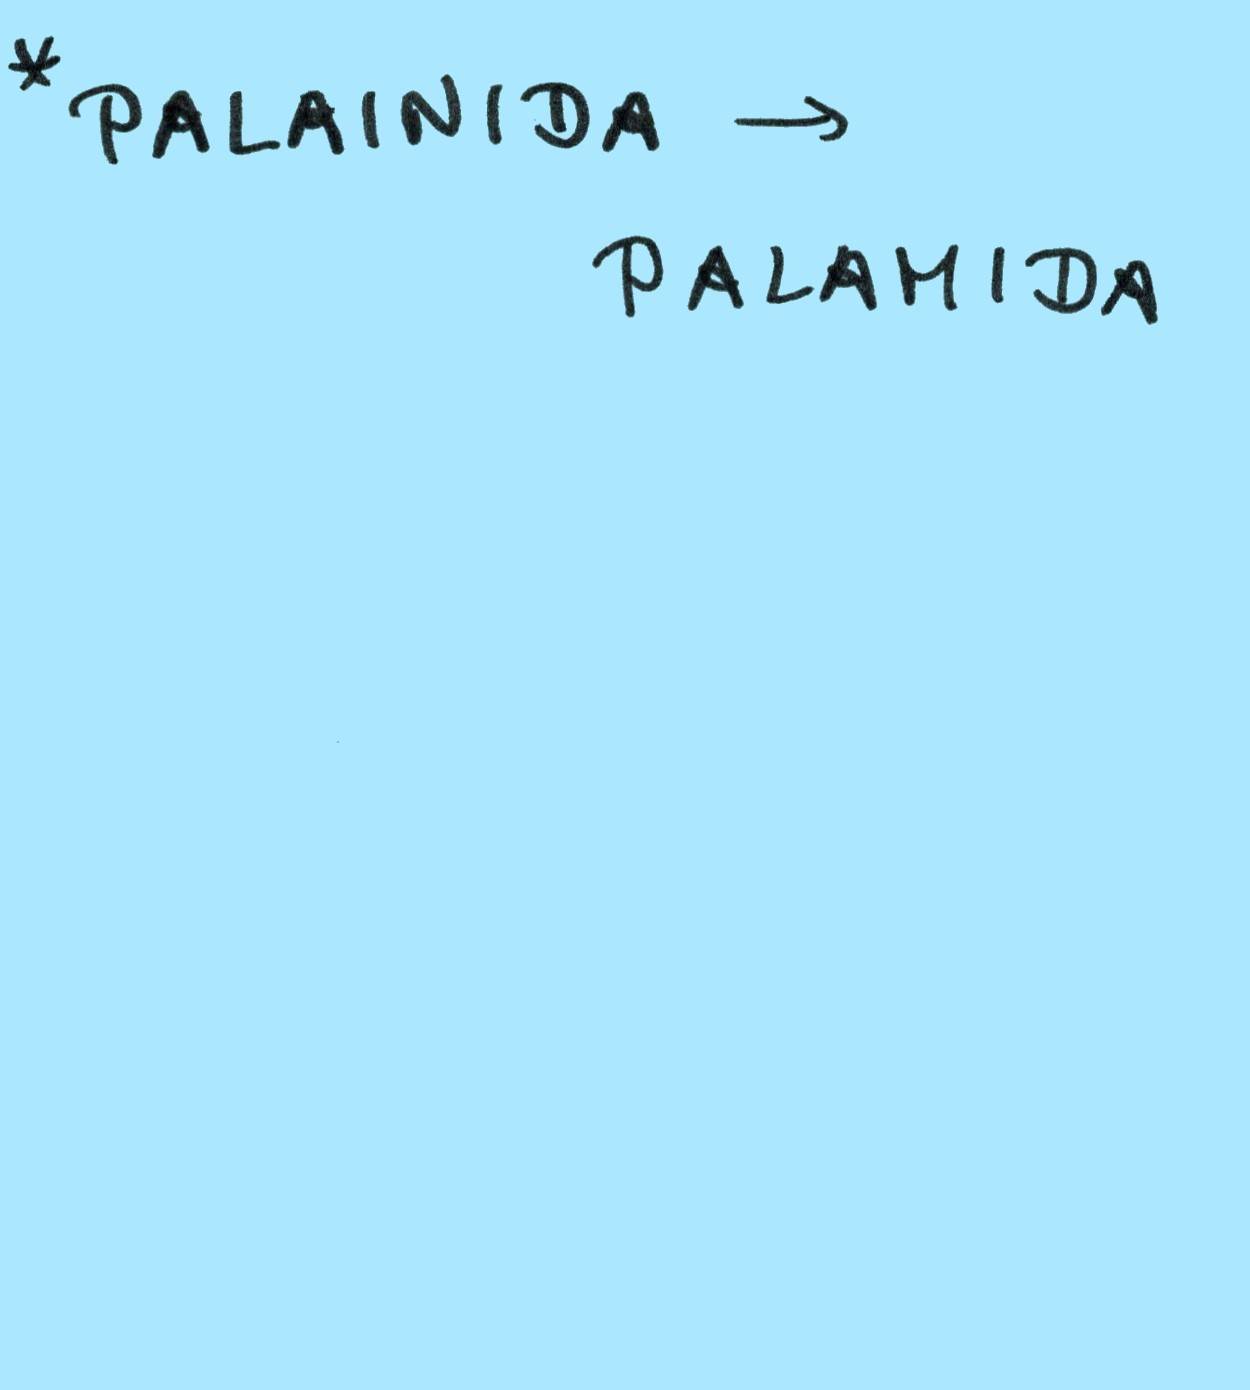 *PALAINIDA →
PALAMIDA